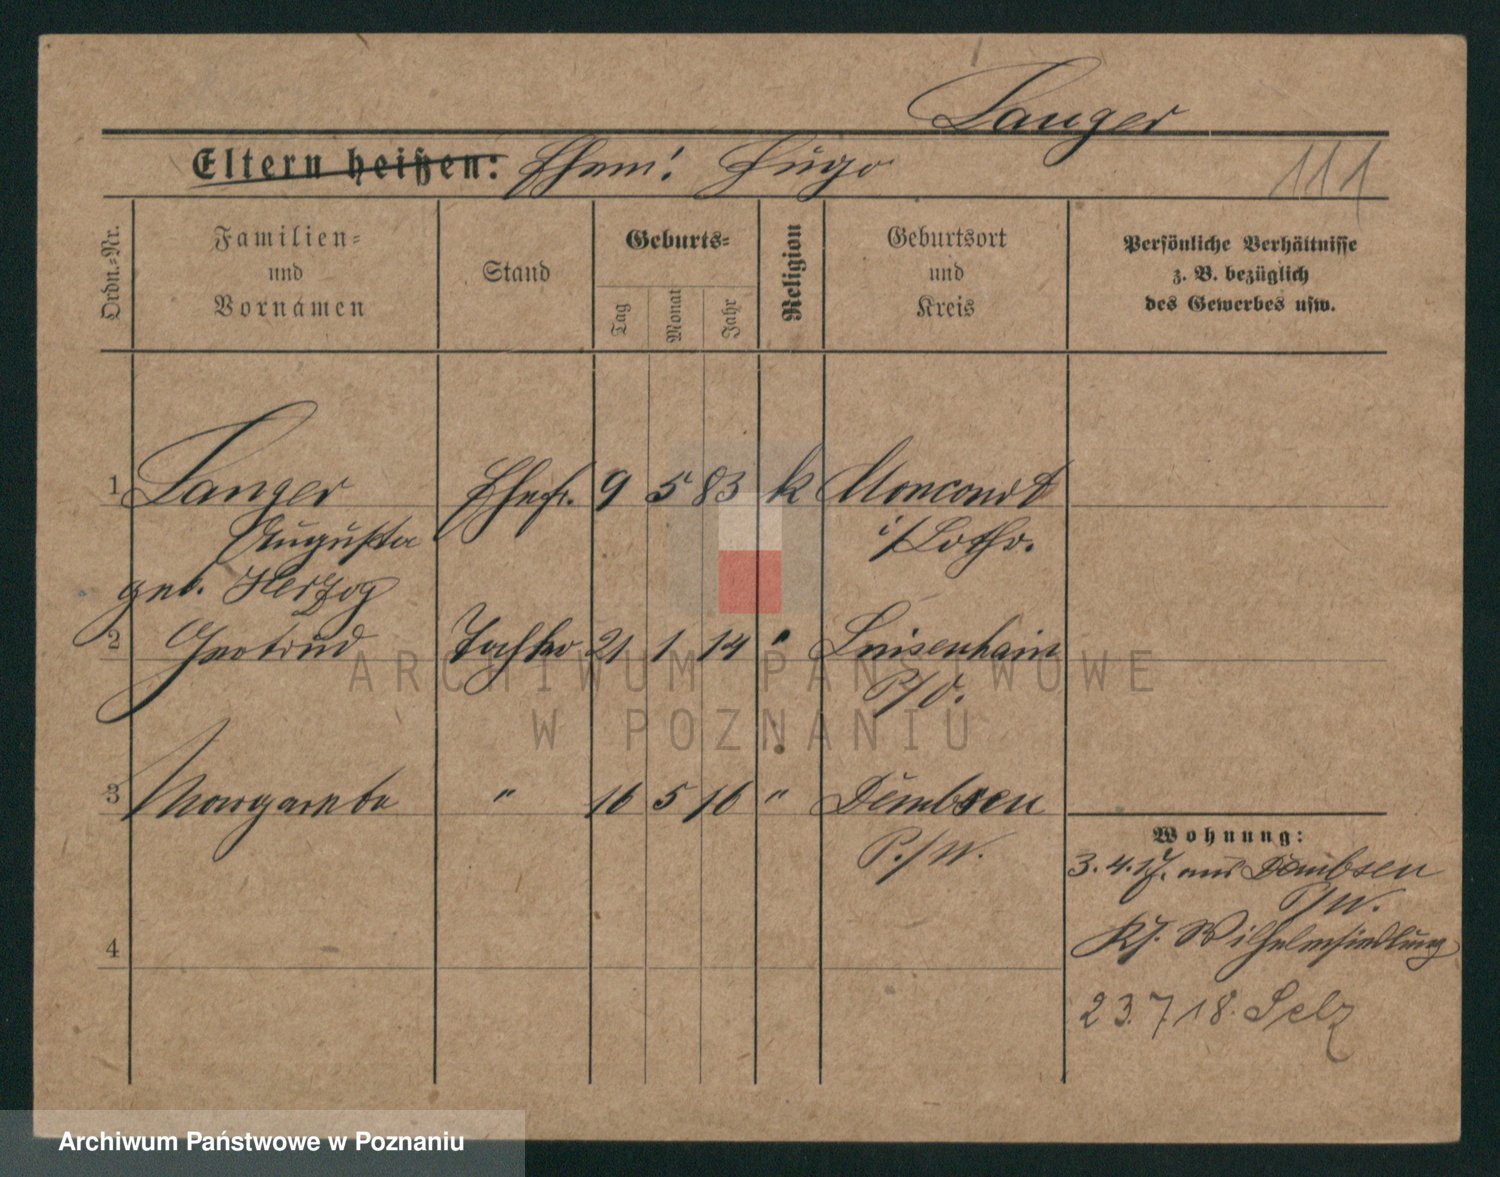 Langer
Eltern heißen: Ehem: Hugo
111
Ordn.-Nr.
Familien-
und
Vornamen
Stand
Geburts-
Tag
Monat
Jahr
Religion
Geburtsort
und
Kreis
Persönliche Verhältnisse
z. B. bezüglich
des Gewerbes usw.
1 Langer Ehefr. 9 5 83 k Moncourt
Augusta i/Lothr.
geb. Herzog
2 Gertrud Tochter 21 1 14 " Luisenhain
P/O.
3 Margareta " 16 5 16 " Dembsen
P./W.
4
Wohnung:
3. 4. 17. aus Dembsen
P/W.
Wilhelmsiedlung
23.7.18. Selz
ARCHIWUM PAŃSTWOWE
W POZNANIU
Archiwum Państwowe w Poznaniu